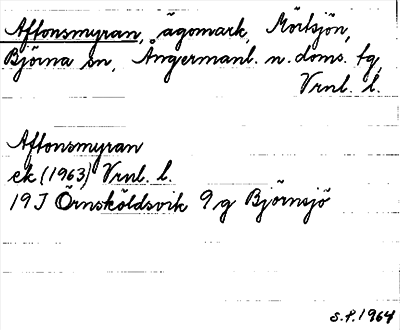 Affonsmyran, ägomark, Mörtsjön,
Björna sn, Ångermanl. n. doms. tg,
Vrnl. l.
Affonsmyran
ek (1963) Vrnl. l.
19J Örnsköldsvik 9g Björnsjö
S.P. 1964